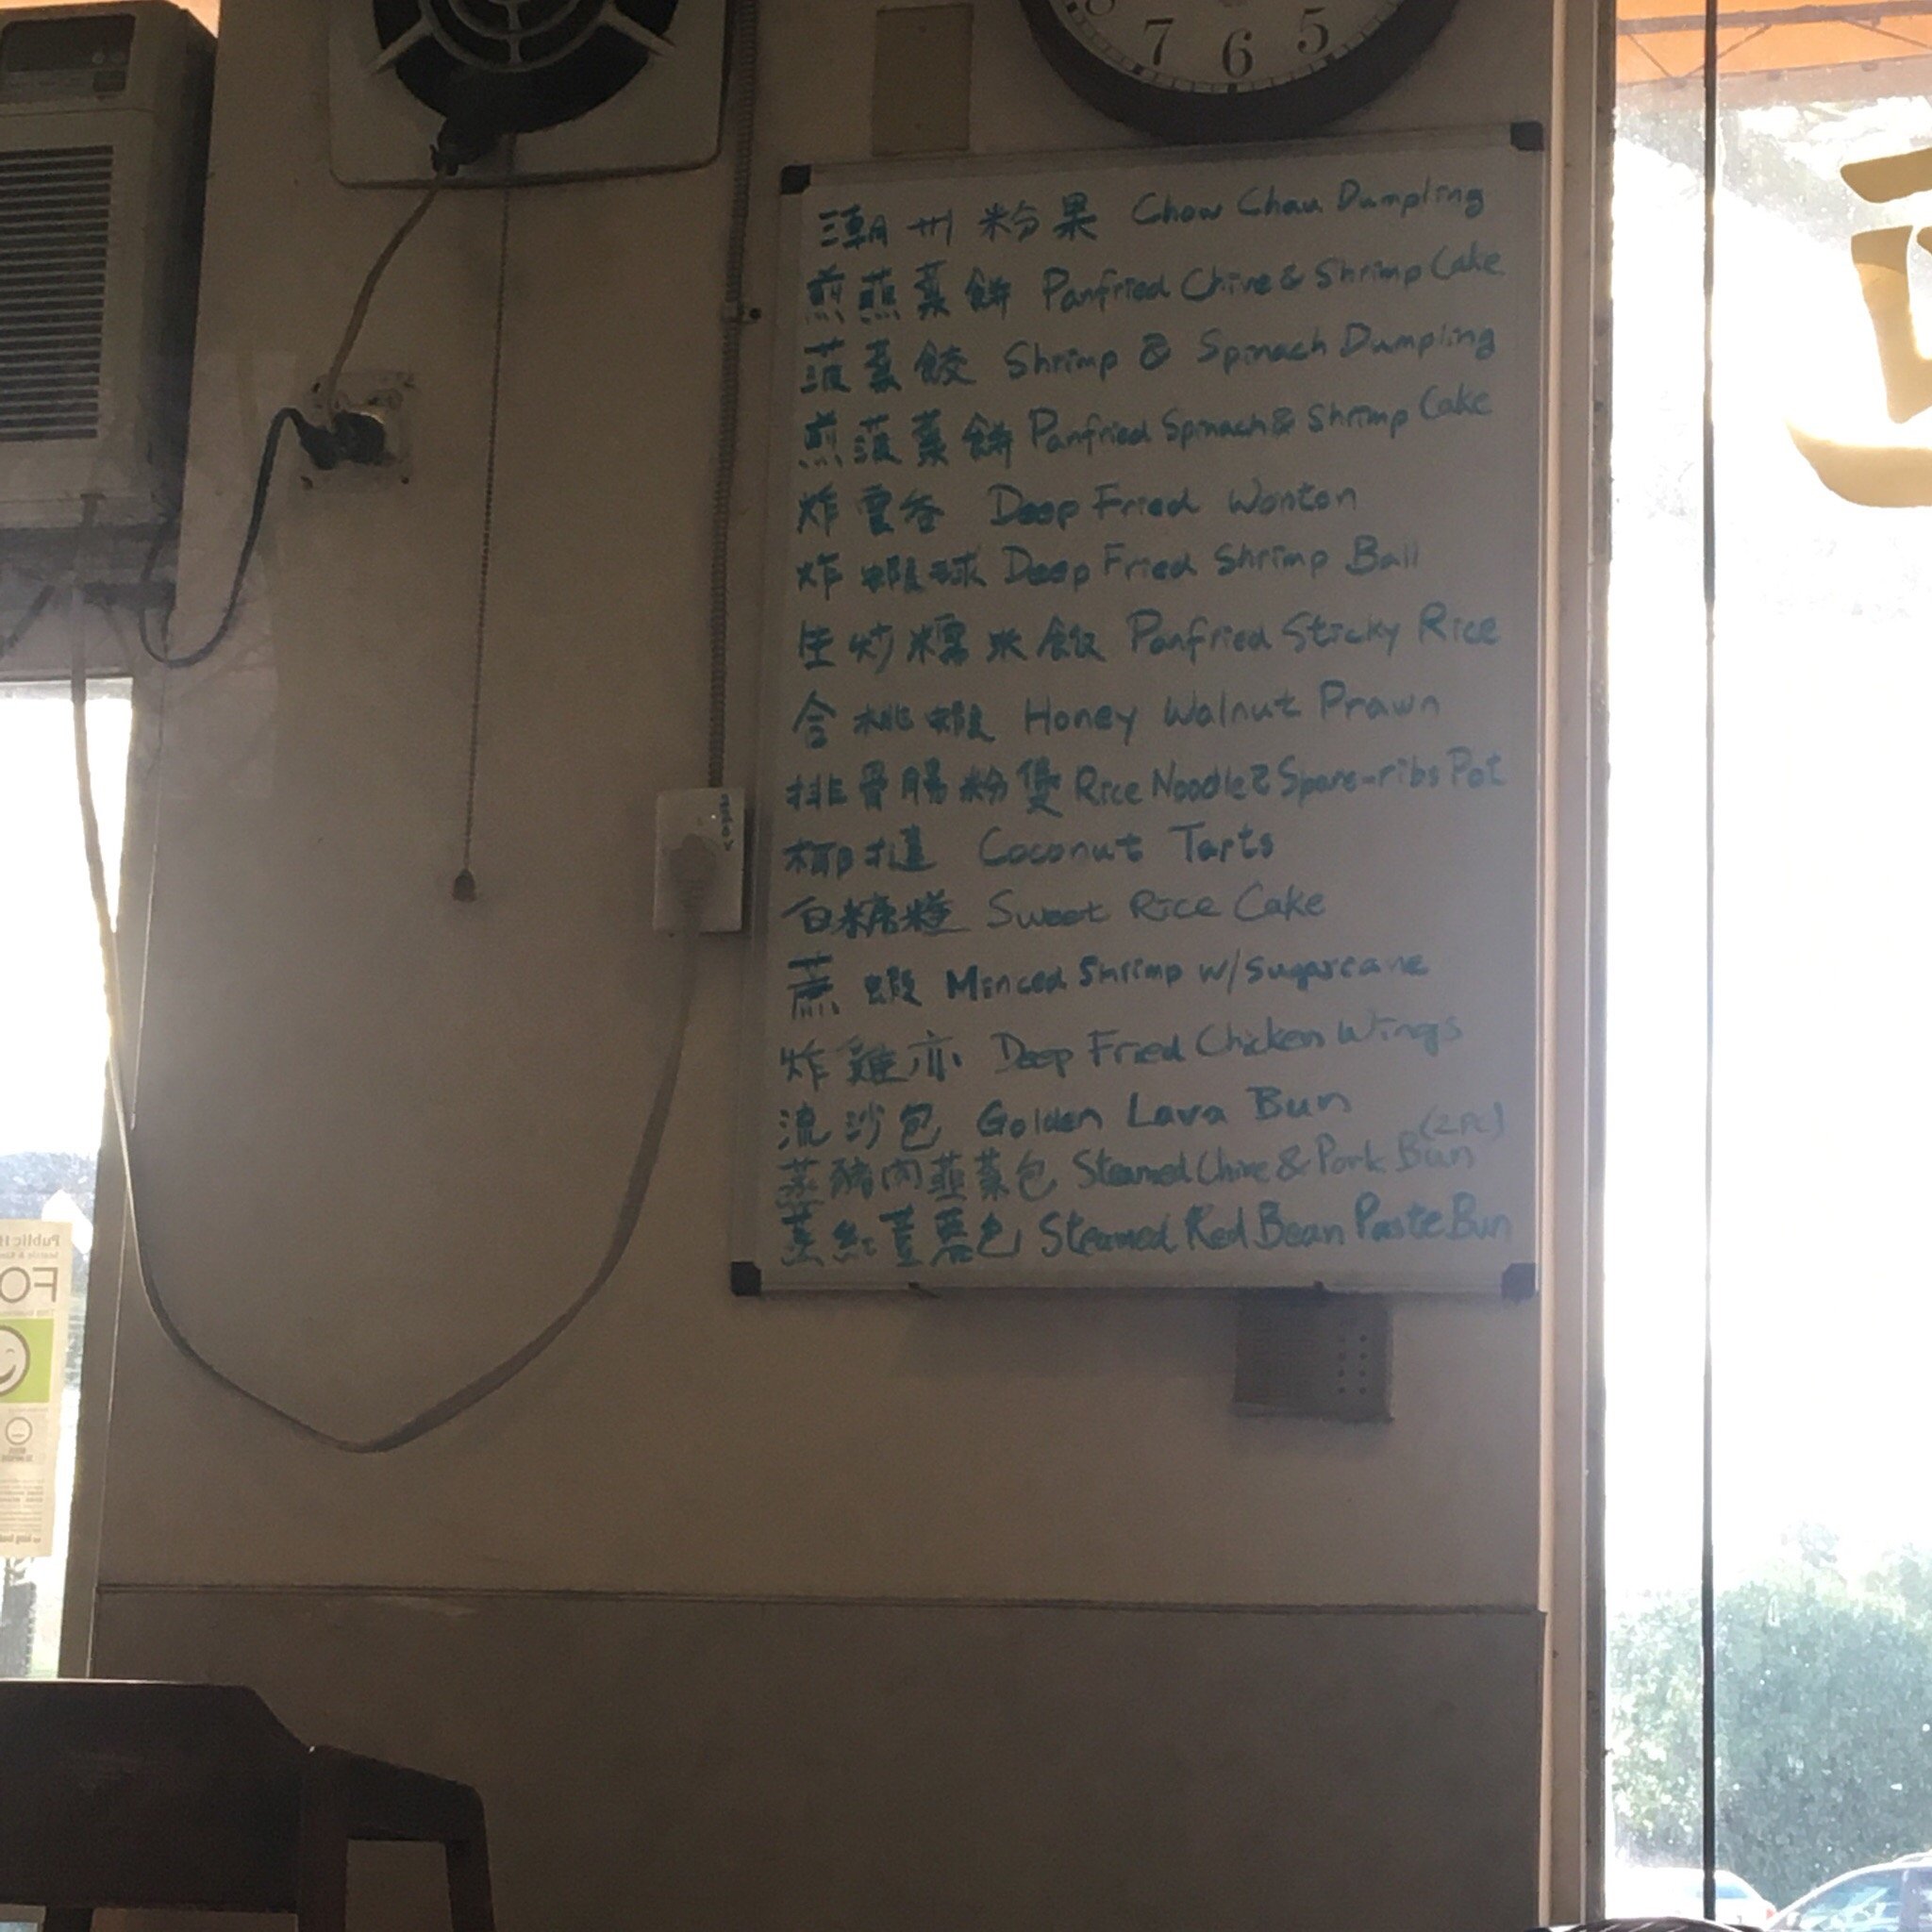 7 6 5
潮州粉果 Chow Chau Dumpling
煎韮菜餅 Panfried Chive & Shrimp Cake
菠菜餃 Shrimp & Spinach Dumpling
煎菠菜餅 Panfried Spinach & Shrimp Cake
炸雲吞 Deep Fried Wonton
炸蝦球 Deep Fried Shrimp Ball
生炒糯米飯 Panfried Sticky Rice
合桃蝦 Honey Walnut Prawn
排骨腸粉煲 Rice Noodle & Spare-ribs Pot
椰撻 Coconut Tarts
白糖糕 Sweet Rice Cake
蔗蝦 Minced Shrimp w/ Sugarcane
炸雞亦 Deep Fried Chicken Wings
流沙包 Golden Lava Bun
蒸豬肉韮菜包 Steamed Chive & Pork Bun (2PC)
蒸紅荳蓉包 Steamed Red Bean Paste Bun
Public
FO